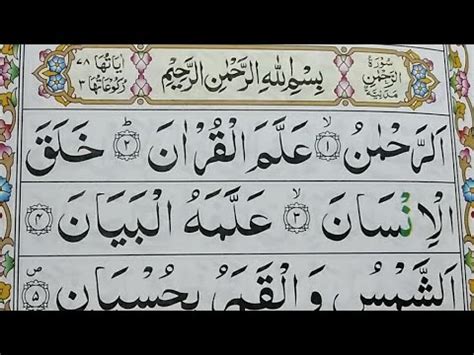 سُوْرَةُ الرَّحْمٰنِ مَدَنِيَّةٌ
بِسْمِ اللهِ الرَّحْمٰنِ الرَّحِيْمِ
اٰيَاتُهَا ٧٨
رُكُوْعَاتُهَا ٣
اَلرَّحْمٰنُ ۙ﴿١﴾ عَلَّمَ الْقُرْاٰنَ ؕ﴿٢﴾ خَلَقَ
الْاِنْسَانَ ۙ﴿٣﴾ عَلَّمَهُ الْبَيَانَ ﴿٤﴾
اَلشَّمْسُ وَالْقَمَرُ بِحُسْبَانٍ ۪﴿٥﴾